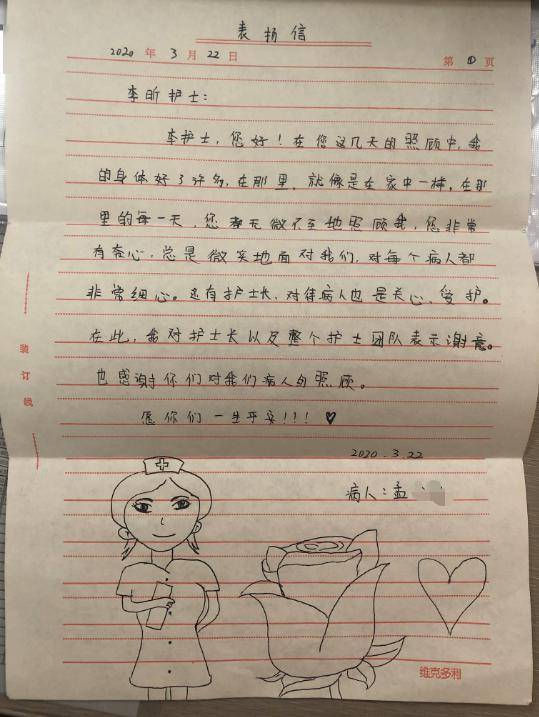 表扬信
2020 年 3 月 22 日 第 ① 页
李昕护士：
李护士，您好！在您这几天的照顾中，我
的身体好了许多，在那里，就像是在家中一样，在那
里的每一天，您都无微不至地照顾我，您非常
有奈心，总是微笑地面对我们，对每个病人都
非常细心。还有护士长，对待病人也是关心、爱护。
在此，我对护士长以及整个护士团队表示谢意。
也感谢你们对我们病人的照顾。
愿你们一生平安！！！♥
2020.3.22
病人：孟
装订线
维克多利